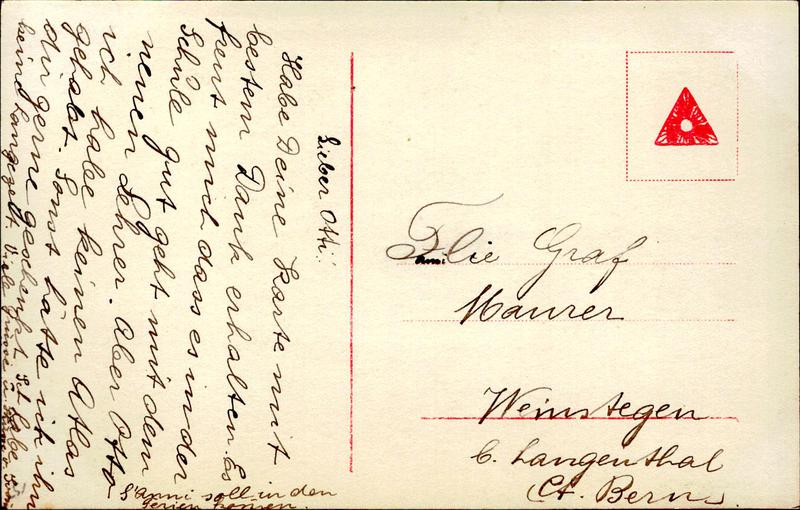 Lieber Otti.
Habe Deine Karte mit
bestem Dank erhalten. Es
freut mich dass es in der
Schule gut geht mit dem
neuen Lehrer. Aber Otto
ich habe keinen Atlas
gehabt. Sonst hätte ich ihn
dir gerne geschenkt. Ich habe
keine Langezeit. Viele Grüsse u.
S'Anni soll in den
Ferien komen.
Flie Graf
Maurer
Weinstegen
b. Langenthal
Ct. Bern.